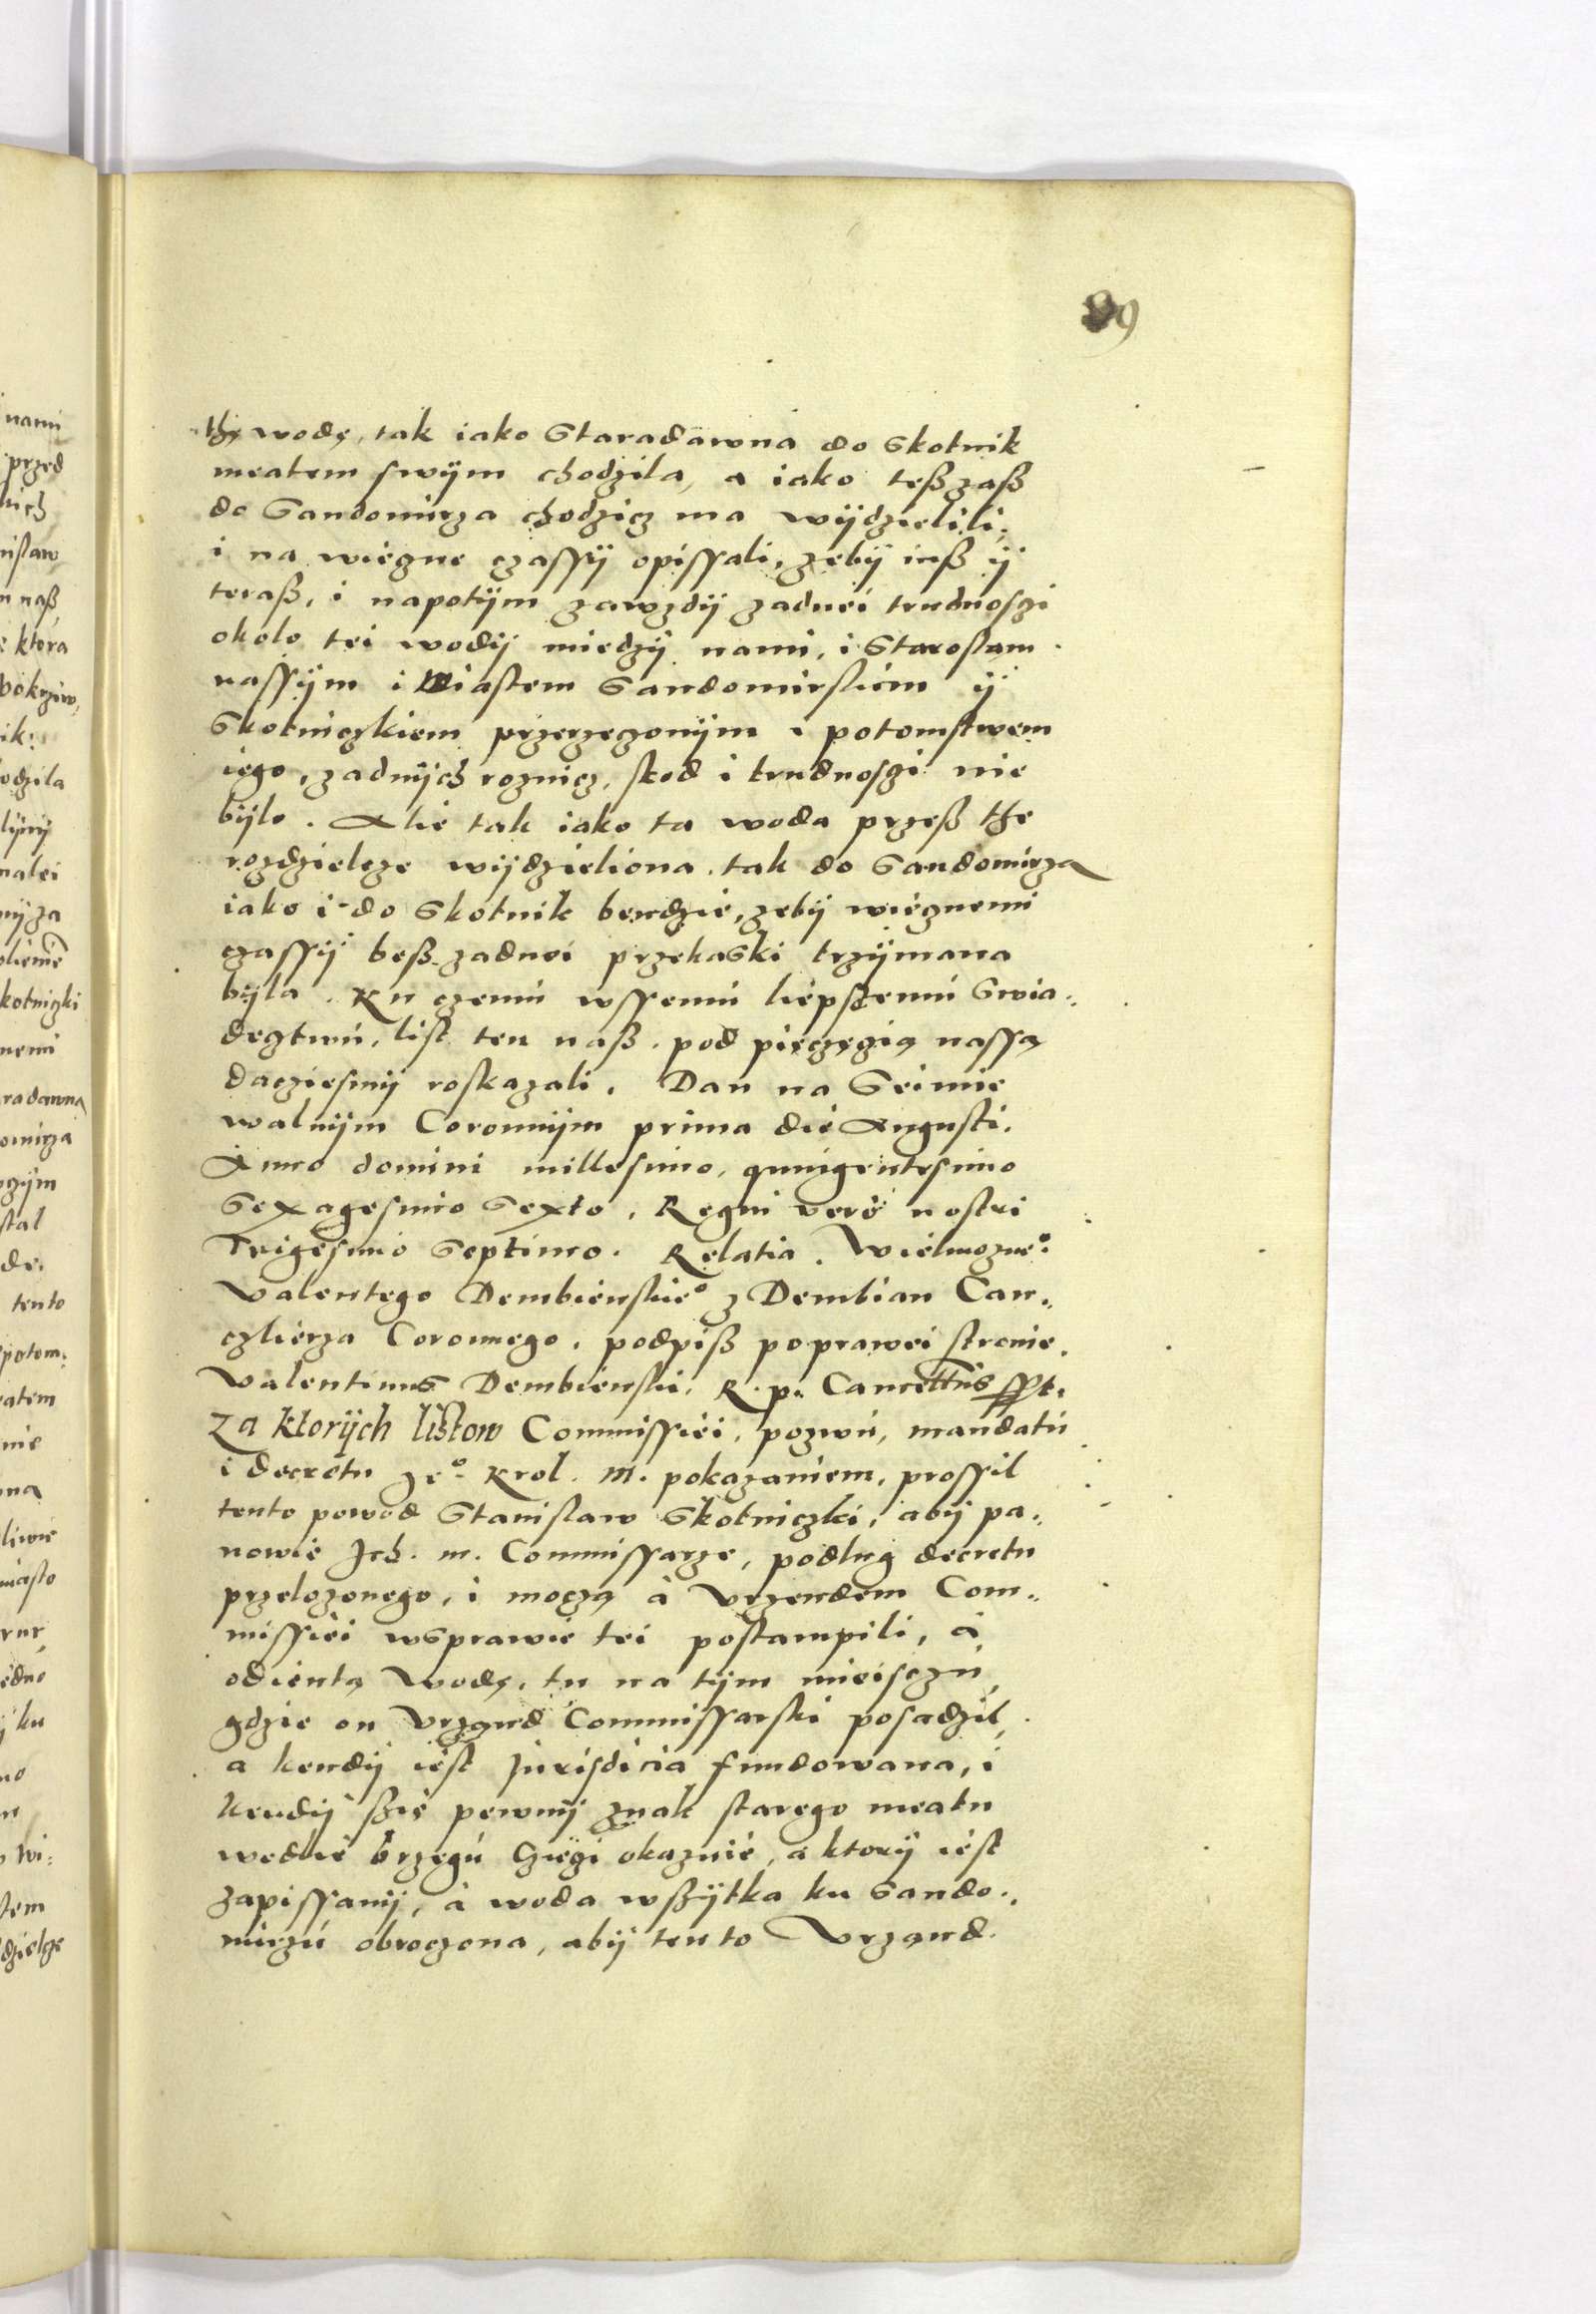 89
thę wodę, tak iako Staradawna do Skotnik
meatem swÿm chodzila, a iako teß zaß
do Sandomirza chodzicz ma wÿdzielili,
i na wieczne czassÿ opissali, zebÿ iuß ÿ
teraß, i napotÿm zawzdÿ zadnei trudnosczi
okolo tei wodÿ miedzÿ nami, i Starostam
nassÿm i Miastem Sandomirskiem ÿ
Skotniczkiem przerzeczonÿm i potomstwem
iego, zadnÿch roznicz, skod i trudnosczi nie
bÿlo. Alie tak iako ta woda przeß the
rozdzielcze wÿdzieliona, tak do Sandomirza
iako i do Skotnik bendzie, zebÿ wiecznemi
czassÿ beß zadnei przekaski trzÿmana
bÿla. Ku czemu wssemu liepssemu Swia:
decztwu, list ten naß, pod pieczęcią nassą
dacziesmÿ roskazali. Dan na Seimie
walnÿm Coronnÿm prima die Augusti.
Anno domini millesimo, quingentesimo
Sexagesimo Sexto, Regni vero nostri
Trigesimo Septimo. Relatia. Wielmozneo
Valentego Dembienskieo z Dembian Can:
czlierza Coronnego, podpiß po prawei stronie.
Valentinus Dembienski, R. p. Cancellrius sspt.
Za ktorÿch listow Commissiei, pozwu, mandatu
i decretu Jeo Krol. M. pokazaniem, prossil
tento powod Stanislaw Skotniczki, abÿ pa:
nowie Jch. m. Commissarze, podlug decretu
przelozonego, i moczą à Vrzendem Com:
missiei wsprawie tei postampili, à
odientą Wodę, tu na tÿm mieisczu,
gdzie on Vrzand Commissarski posadzil,
a kendÿ iest Jurisdicia fundowana, i
kendÿ ßie pewnÿ znak starego meatu
wedlie brzegu okaznie, a ktorÿ iest
zapissanÿ, à woda wßÿtka ku Sando:
mirzu obroczona, abÿ ten to Vrzand